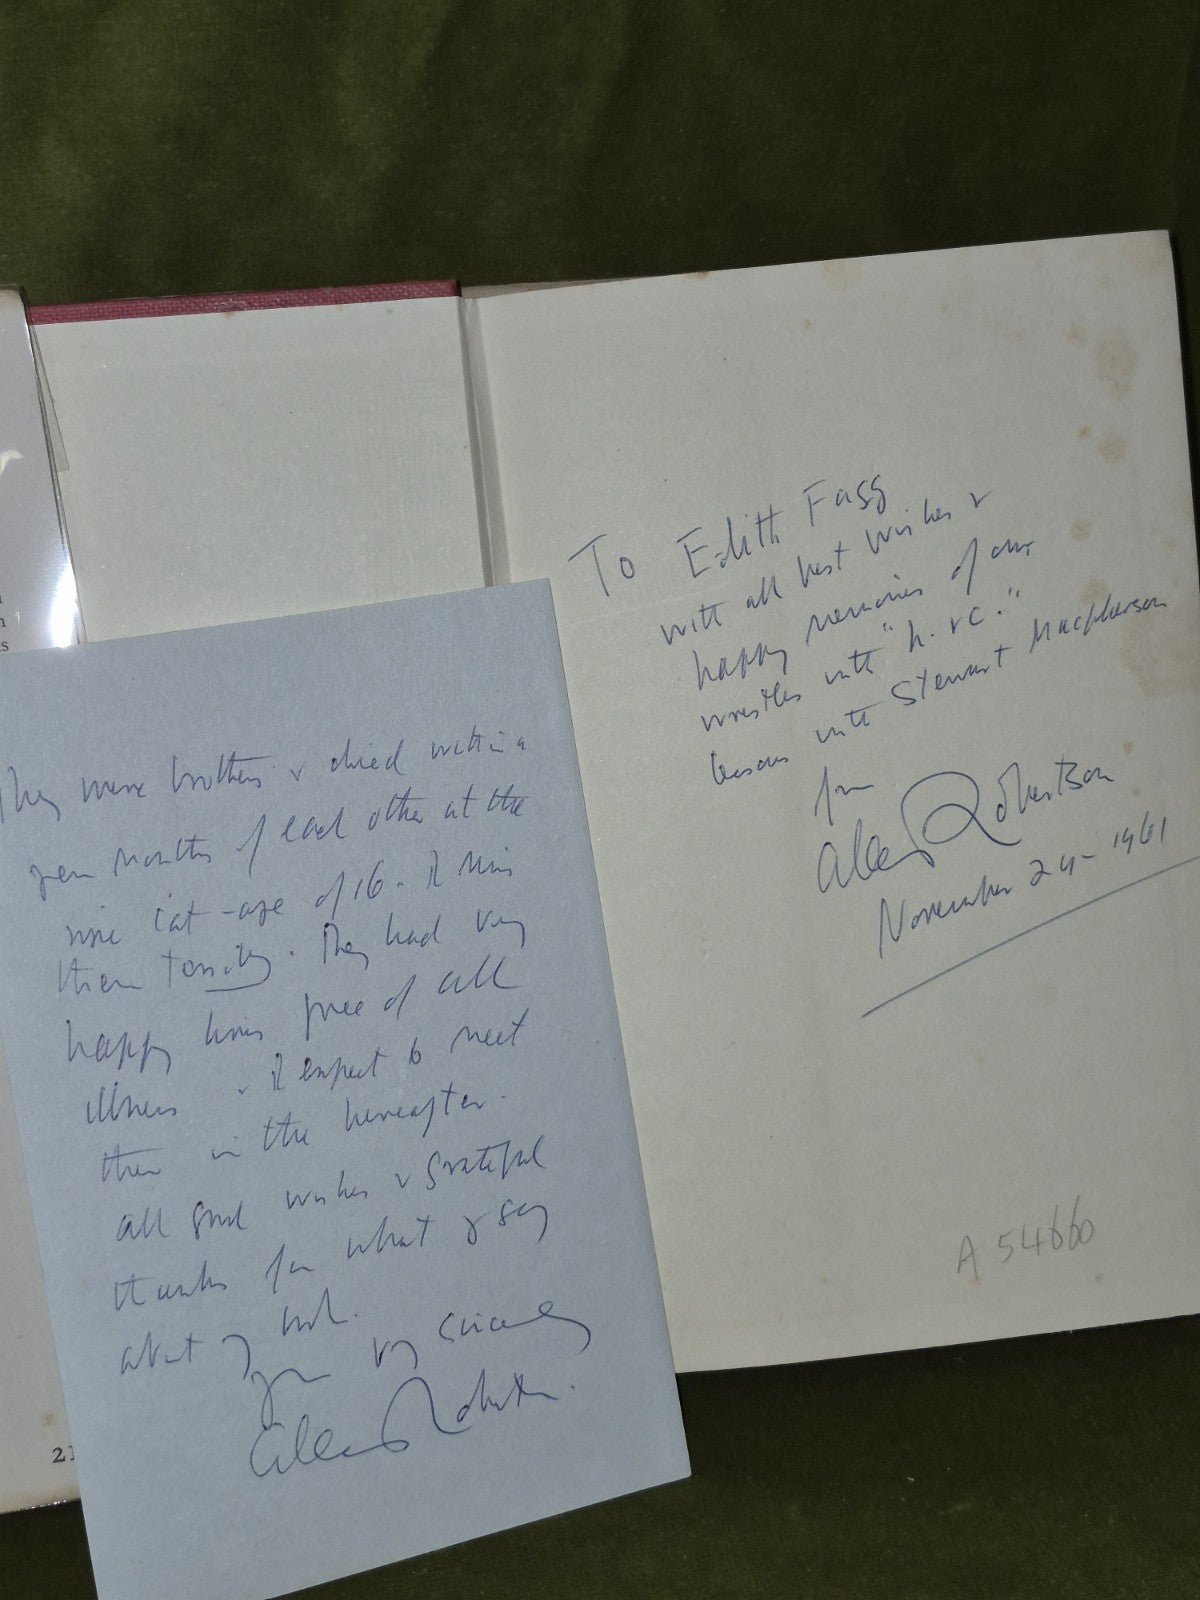 They were brothers & died within a
few months of each other at the
ripe cat-age of 16. I miss
them terribly. They had very
happy lives free of all
illness & I expect to meet
them in the hereafter.
All good wishes & grateful
thanks for what y say
about my book.
Yrs very sincerely
Alec Robertson.
To Edith Fagg
with all best wishes &
happy memories of our
wrestles with "h. & c."
lessons with Stewart Macpherson
from
Alec Robertson
November 24 - 1961
A 54660